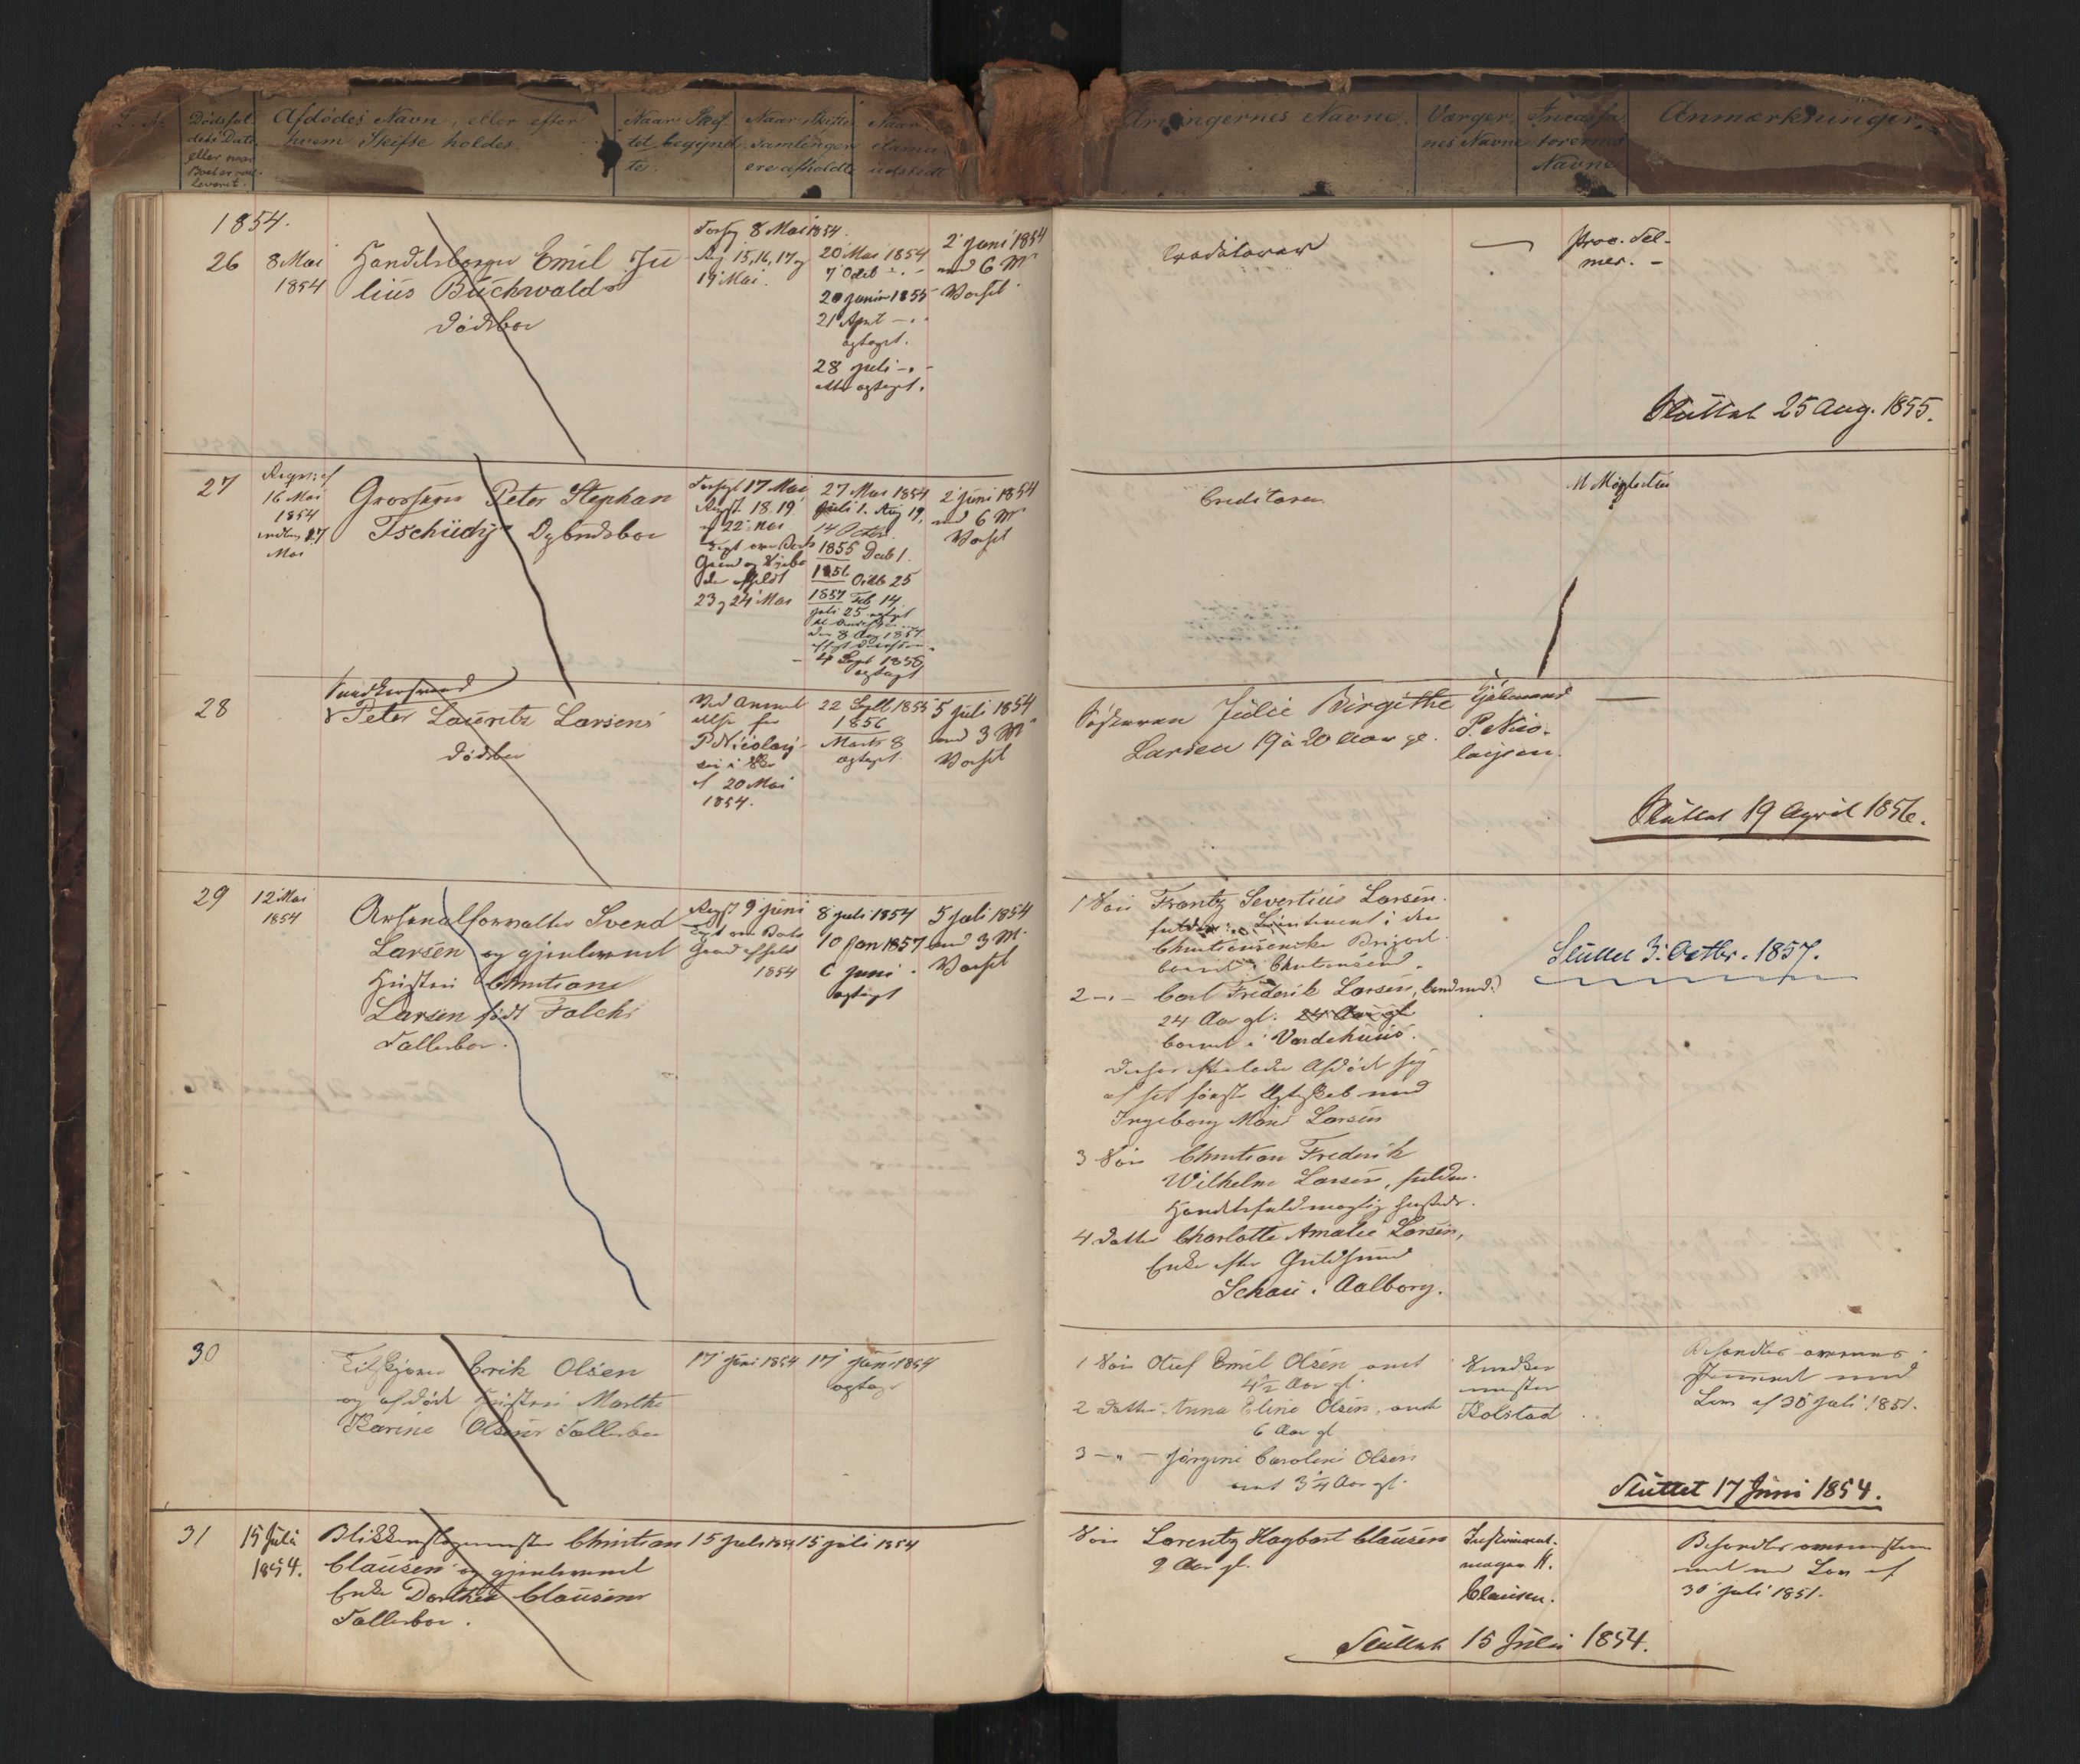 Dødsfal
dets Dato
eller naar
Boet er
leveret.
Afdødes Navn, eller efter
hvem Skifte holdes.
Naar Skif-
tet begynd-
te.
Naar Skifte
samlinger
ere afholdte
Naar
udstedt
Arvingernes Navne.
Værger-
nes Navne
Navne
Anmærkninger.
1854.
26
8 Mai
1854
Handelsborger Emil Ju
lius Buchwalds
Dødsbo
8 Mai 1854.
15, 16, 17 og
19 Mai.
20 Mai 1854
7 Octb
20 Januar 1855
21 April
optaget.
28 Juli
atter optaget.
2 Juni 1854
med 6 Mrs
Varsel
Creditorer
Proc. Sel-
mer.
Sluttet 25 Aug. 1855.
27
16 Mai
1854
Mai
Grosserer Peter Stephan
Tschudys Opbudsbo
17 Mai
18. 19
og 22 Mai
23 og 24 Mai
27 Mai 1854
Juli 1. Aug 19.
14 Octbr
1855 Decb 1.
1856 Octb 25
1857 Feb 14
Juli 25 optaget
8 Aug 1857
4 Sept 1858
optaget
2 Juni 1854
med 6 Mrs
Varsel
Creditorer
28
Peter Lauritz Larsens
Dødsbo
P Nicolay-
sen
af 20 Mai
1854.
22 Septb 1855
1856
Marts 8
optaget.
5 Juli 1854
med 3 Mrs
Varsel
Søsteren Julie Birgithe
Larsen 19 à 20 Aar gl.
P. Nico-
laysen.
Sluttet 19 April 1856.
29
12 Mai
1854
Arsenalforvalter Svend
Larsen og gjenlevende
Hustru Christiane
Larsen født Falch's
Fællesbo.
9 Juni
1854
8 Juli 1854
10 Jan 1857
6 Juni
optaget
5 Juli 1854
med 3 M.
Varsel
1 Søn Frantz Severtius Larsen.
Lieutenant i den
Christiansandske Brigade
boende i Christiansand.
2 Carl Frederik Larsen,
24 Aar gl. 24 Aar gl
boende i Vardehuus.
Desuden efterlader Afdøde sig
af sit første Ægteskab med
Ingeborg Marie Larsen
3 Søn Christian Frederik
Wilhelm Larsen, fuldm.
Handelsfuldmægtig
4 Datter Charlotte Amalie Larsen,
Enke efter Guldsmed
Schau i Aalborg.
Sluttet 3 Octbr. 1857.
30
Erik Olsen
og afdøde Hustru Marthe
Karine Olsens Fællesbo
17 Juni 1854
17 Juni 1854
optaget
1 Søn Oluf Emil Olsen omt
4½ Aar gl.
2 Datter Anna Eline Olsen, omt
6 Aar gl
3 Jørgine Caroline Olsen
omt 3¼ Aar gl.
Snedker
mester
Kolstad
Behandles overens-
stemmende med
Lov af 30 Juli 1851.
Sluttet 17 Juni 1854.
31
15 Juli
1854.
Blikkenslagermester Christian
Clausen og gjenlevende
Enke Dorthea Clausens
Fællesbo.
15 Juli 1854
15 Juli 1854
Søn Lorentz Hagbart Clausen
9 Aar gl.
Instrument-
mager H.
Clausen.
Behandles overensstem-
mende med Lov af
30 Juli 1851.
Sluttet 15 Juli 1854.